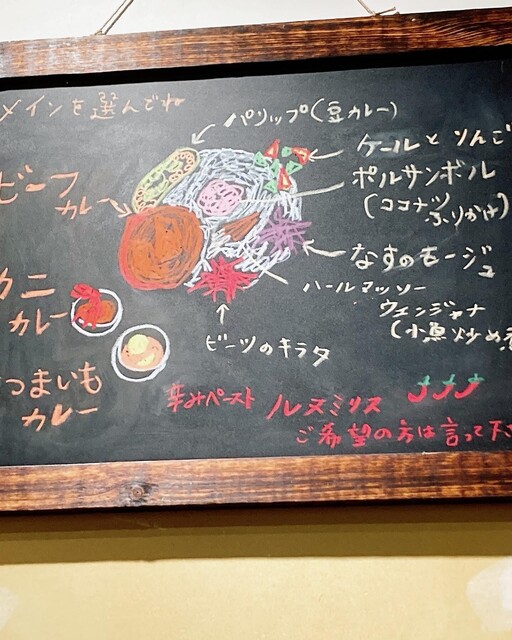 メインを選んでね
パリップ(豆カレー)
ケールとりんご
ビーフ
カレー
ポルサンボル
(ココナツ
ふりかけ)
なすのモージュ
カニ
カレー
ハールマッソー
ウェンジャナ
(小魚炒め煮
ビーツのキラタ
つまいも
カレー
辛みペースト ルヌミリス
ご希望の方は言って下さ